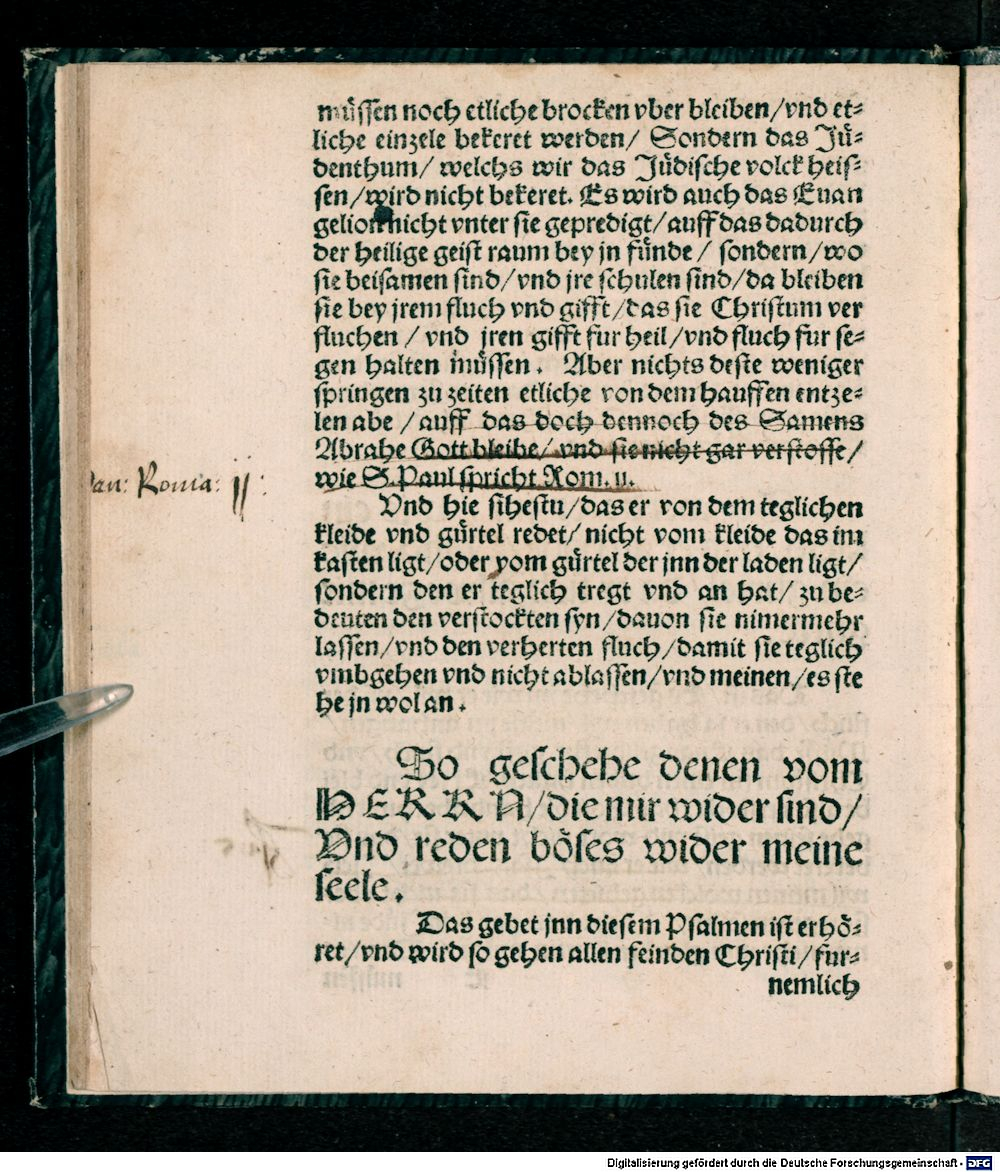 müssen noch etliche brocken vber bleiben/vnd et⸗
liche einzele bekeret werden/ Sondern das Jü⸗
denthum/ welchs wir das Jüdische volck heis⸗
sen/wird nicht bekeret. Es wird auch das Euan
gelion nicht vnter sie gepredigt/auff das dadurch
der heilige geist raum bey jn fünde/ sondern/wo
sie beisamen sind/vnd jre schulen sind/da bleiben
sie bey jrem fluch vnd gifft/das sie Christum ver
fluchen / vnd jren gifft fur heil/vnd fluch fur se⸗
gen halten müssen. Aber nichts deste weniger
springen zu zeiten etliche von dem hauffen entze⸗
len abe /auff das doch dennoch des Samens
Abrahe Gott bleibe/ vnd sie nicht gar verstosse/
wie S. Paul spricht Rom. 11.
Roma: 11:
Vnd hie sihestu/das er von dem teglichen
kleide vnd gürtel redet/ nicht vom kleide das im
kasten ligt/oder vom gürtel der jnn der laden ligt/
sondern den er teglich tregt vnd an hat/ zu be⸗
deuten den verstockten syn/dauon sie nimermehr
lassen/vnd den verherten fluch/damit sie teglich
vmbgehen vnd nicht ablassen/vnd meinen/es ste
he jn wol an.
So geschehe denen vom
HERRN/die mir wider sind/
Vnd reden böses wider meine
seele.
Das gebet jnn diesem Psalmen ist erhö⸗
ret/vnd wird so gehen allen feinden Christi/fur⸗
nemlich
Digitalisierung gefördert durch die Deutsche Forschungsgemeinschaft - DFG